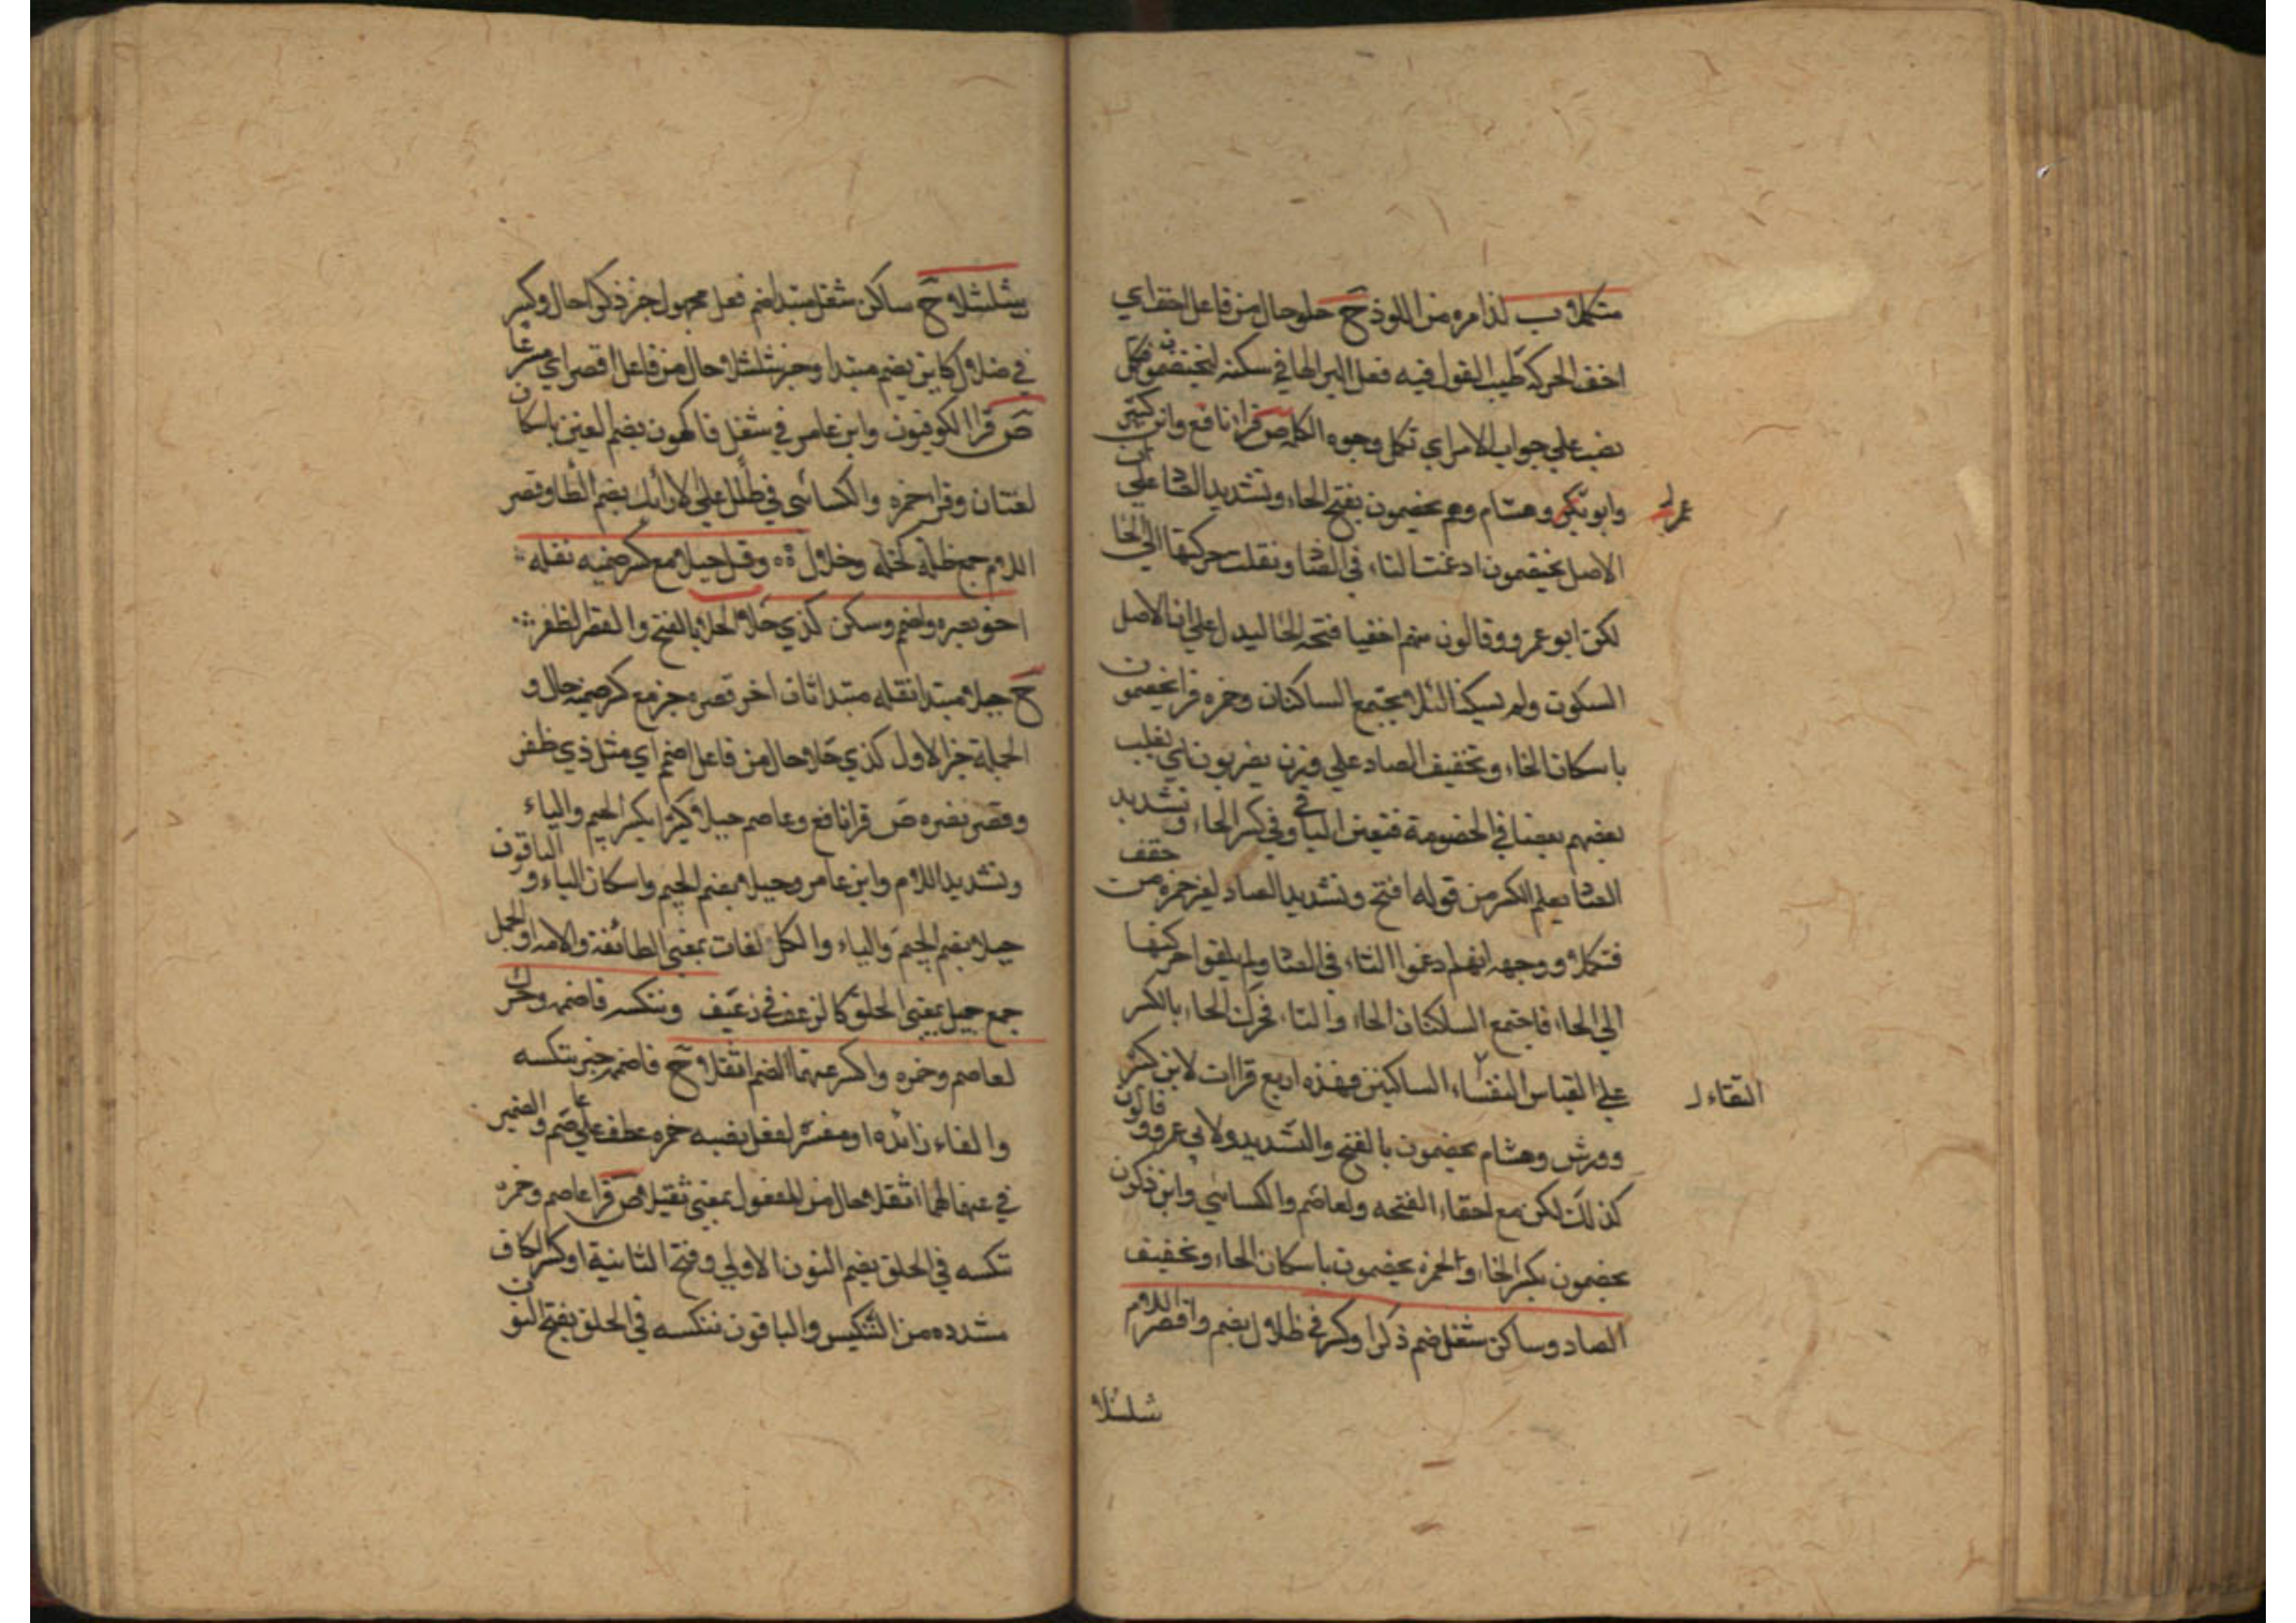 فتكملا ب لذ امره من اللوذ ح حلو حال من فاعل اخف اي
اخف الحركة طيب القول فيه فعل البر الها في سكنه ليخصمون فتكمل
نصب علي جواب الامر اي تكمل وجوه الكلم ص قرا نافع وابن كثير
وابو بكر وهشام وهم يخصمون بفتح الخاء وتشديد الصاد علي ان
عمرو
الاصل يختصمون ادغمت التاء في الصاد ونقلت حركتها الي الخا
لكن ابو عمرو وقالون منهم اخفيا فتحه الخا ليدل علي ان الاصل
السكون ولم يسكنا لئلا يجتمع الساكنان وحمزه قرا يخصمون
باسكان الخاء وتخفيف الصاد علي وزن يضربون اي يغلب
بعضهم بعضا في الخصومة فتعين الباقي وفي كسر الخاء وتشديد
الصاد يعلم الكسر من قوله افتح وتشديد الصاد لغير حمزه من خفف
فتكملا ووجهه انهم ادغموا التاء في الصاد ولم يلقوا حركتها
الي الخاء فاجتمع الساكنان الخاء والتاء فحرك الخاء بالكسر
علي القياس التقاء الساكنين فهذه اربع قراات لابن كثير
التقاء
وورش وهشام يخصمون بالفتح والتشديد ولابي عمرو وقالون
كذلك لكن مع اخفاء الفتحه ولعاصم والكسائي وابن ذكوان
يخصمون بكسر الخاء ولحمزه يخصمون باسكان الخاء وتخفيف
الصاد وساكن شغل ضم ذكرا وكسر في ظلال بضم واقصر اللام
شلشلا
شلشلا ح ساكن شغل مبتدا ضم فعل مجهول خبر ذكرا حال وكسر
في ظلال كاين بضم مبتدا وخبر شلشلا حال من فاعل اقصر اي مسرعا
ص قرا الكوفيون وابن عامر في شغل فاكهون بضم الغين باسكان
لغتان وقرا حمزه والكسائي في ظلل علي الارائك بضم الظا وقصر
اللام جمع ظلة كخلة وخلال ه وقل جبلا مع كسر ضميه ثقله
اخو نصره واضم وسكن كذي حلا الحلا بالفتح والقصر الظفر
ح جبلا مبتدا ثقله مبتدا ثان اخو نصره خبر مع كسر ضميه حال و
الجملة خبر الاول كذي حلا حال من فاعل اضمم اي مثل ذي ظفر
وقصر نصره ص قرا نافع وعاصم جبلا كثيرا بكسر الجيم والباء
وتشديد اللام وابن عامر وجبلا بضم الجيم واسكان الباء والباقون
جبلا بضم الجيم والباء والكل لغات بمعني الطائفة والامه او الجبل
جمع جبيل بمعني الخلق كالرغف في رغيف وننكسه فاضممه وحرك
لعاصم وحمزه واكسر عنهما الضم اثقلا ح فاضممه خبر ننكسه
والفاء زائده او مفسر لفعل نصبه حمزه عطف علي عاصم والضمير
في عنهما لهما اثقلا حال من المفعول بمعني ثقيلا ص قرا عاصم وحمزه
ننكسه في الخلق بضم النون الاولي وفتح الثانية او كسر الكاف
مشدده من التنكيس والباقون ننكسه في الخلق بفتح النون